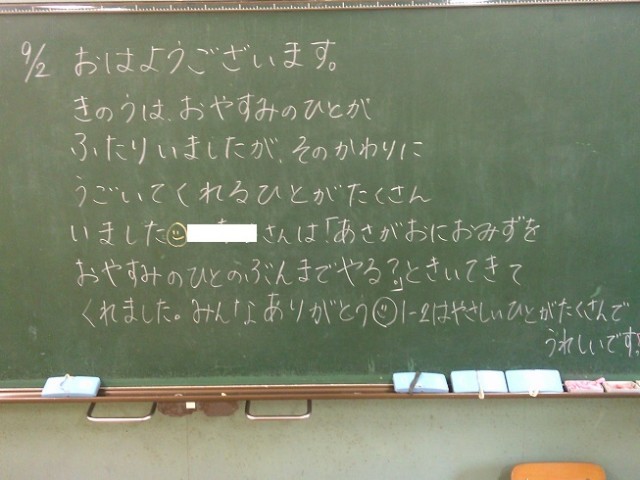 9/2 おはようございます。
きのうは、おやすみのひとが
ふたりいましたが、そのかわりに
うごいてくれるひとがたくさん
いました さんは「あさがおにおみずを
おやすみのひとのぶんまでやる?」ときいてきて
くれました。みんなありがとう 1-2はやさしいひとがたくさんで
うれしいです!